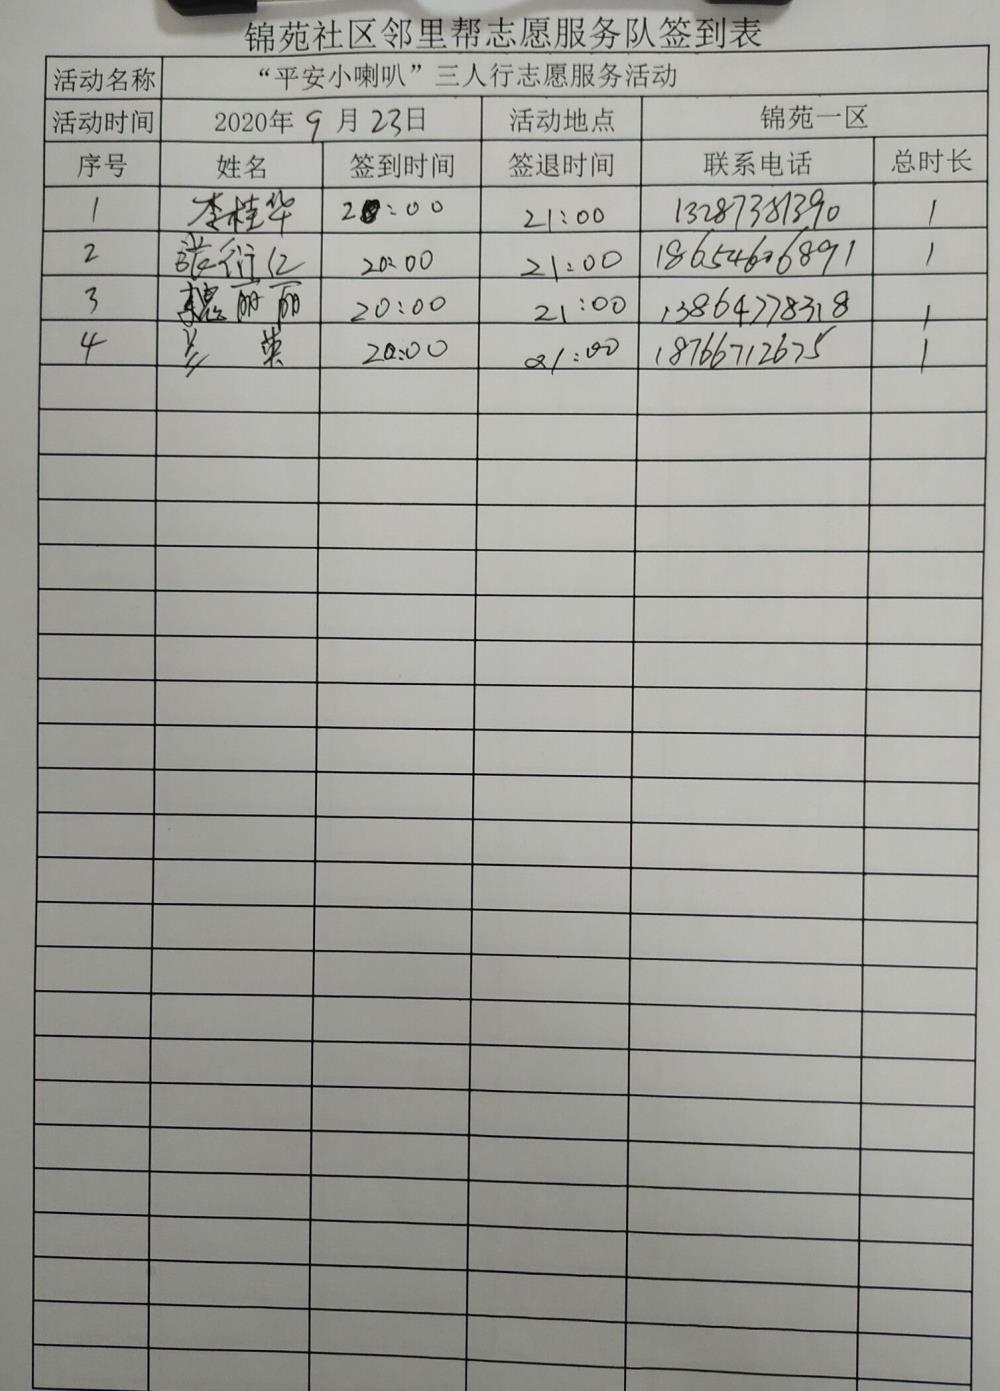 锦苑社区邻里帮志愿服务队签到表
活动名称 “平安小喇叭”三人行志愿服务活动
活动时间 2020年9月23日 活动地点 锦苑一区
序号 姓名 签到时间 签退时间 联系电话 总时长
1 李桂华 20:00 21:00 13287381390 1
2 张衍仁 20:00 21:00 18654606891 1
3 魏丽丽 20:00 21:00 13864778318 1
4 英 20:00 21:00 18766712675 1